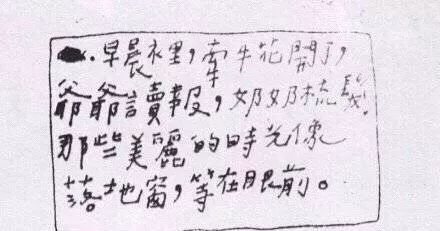 早晨裡，牽牛花開了，
爺爺讀報，奶奶梳髮.
那些美麗的時光像
落地窗，等在眼前。